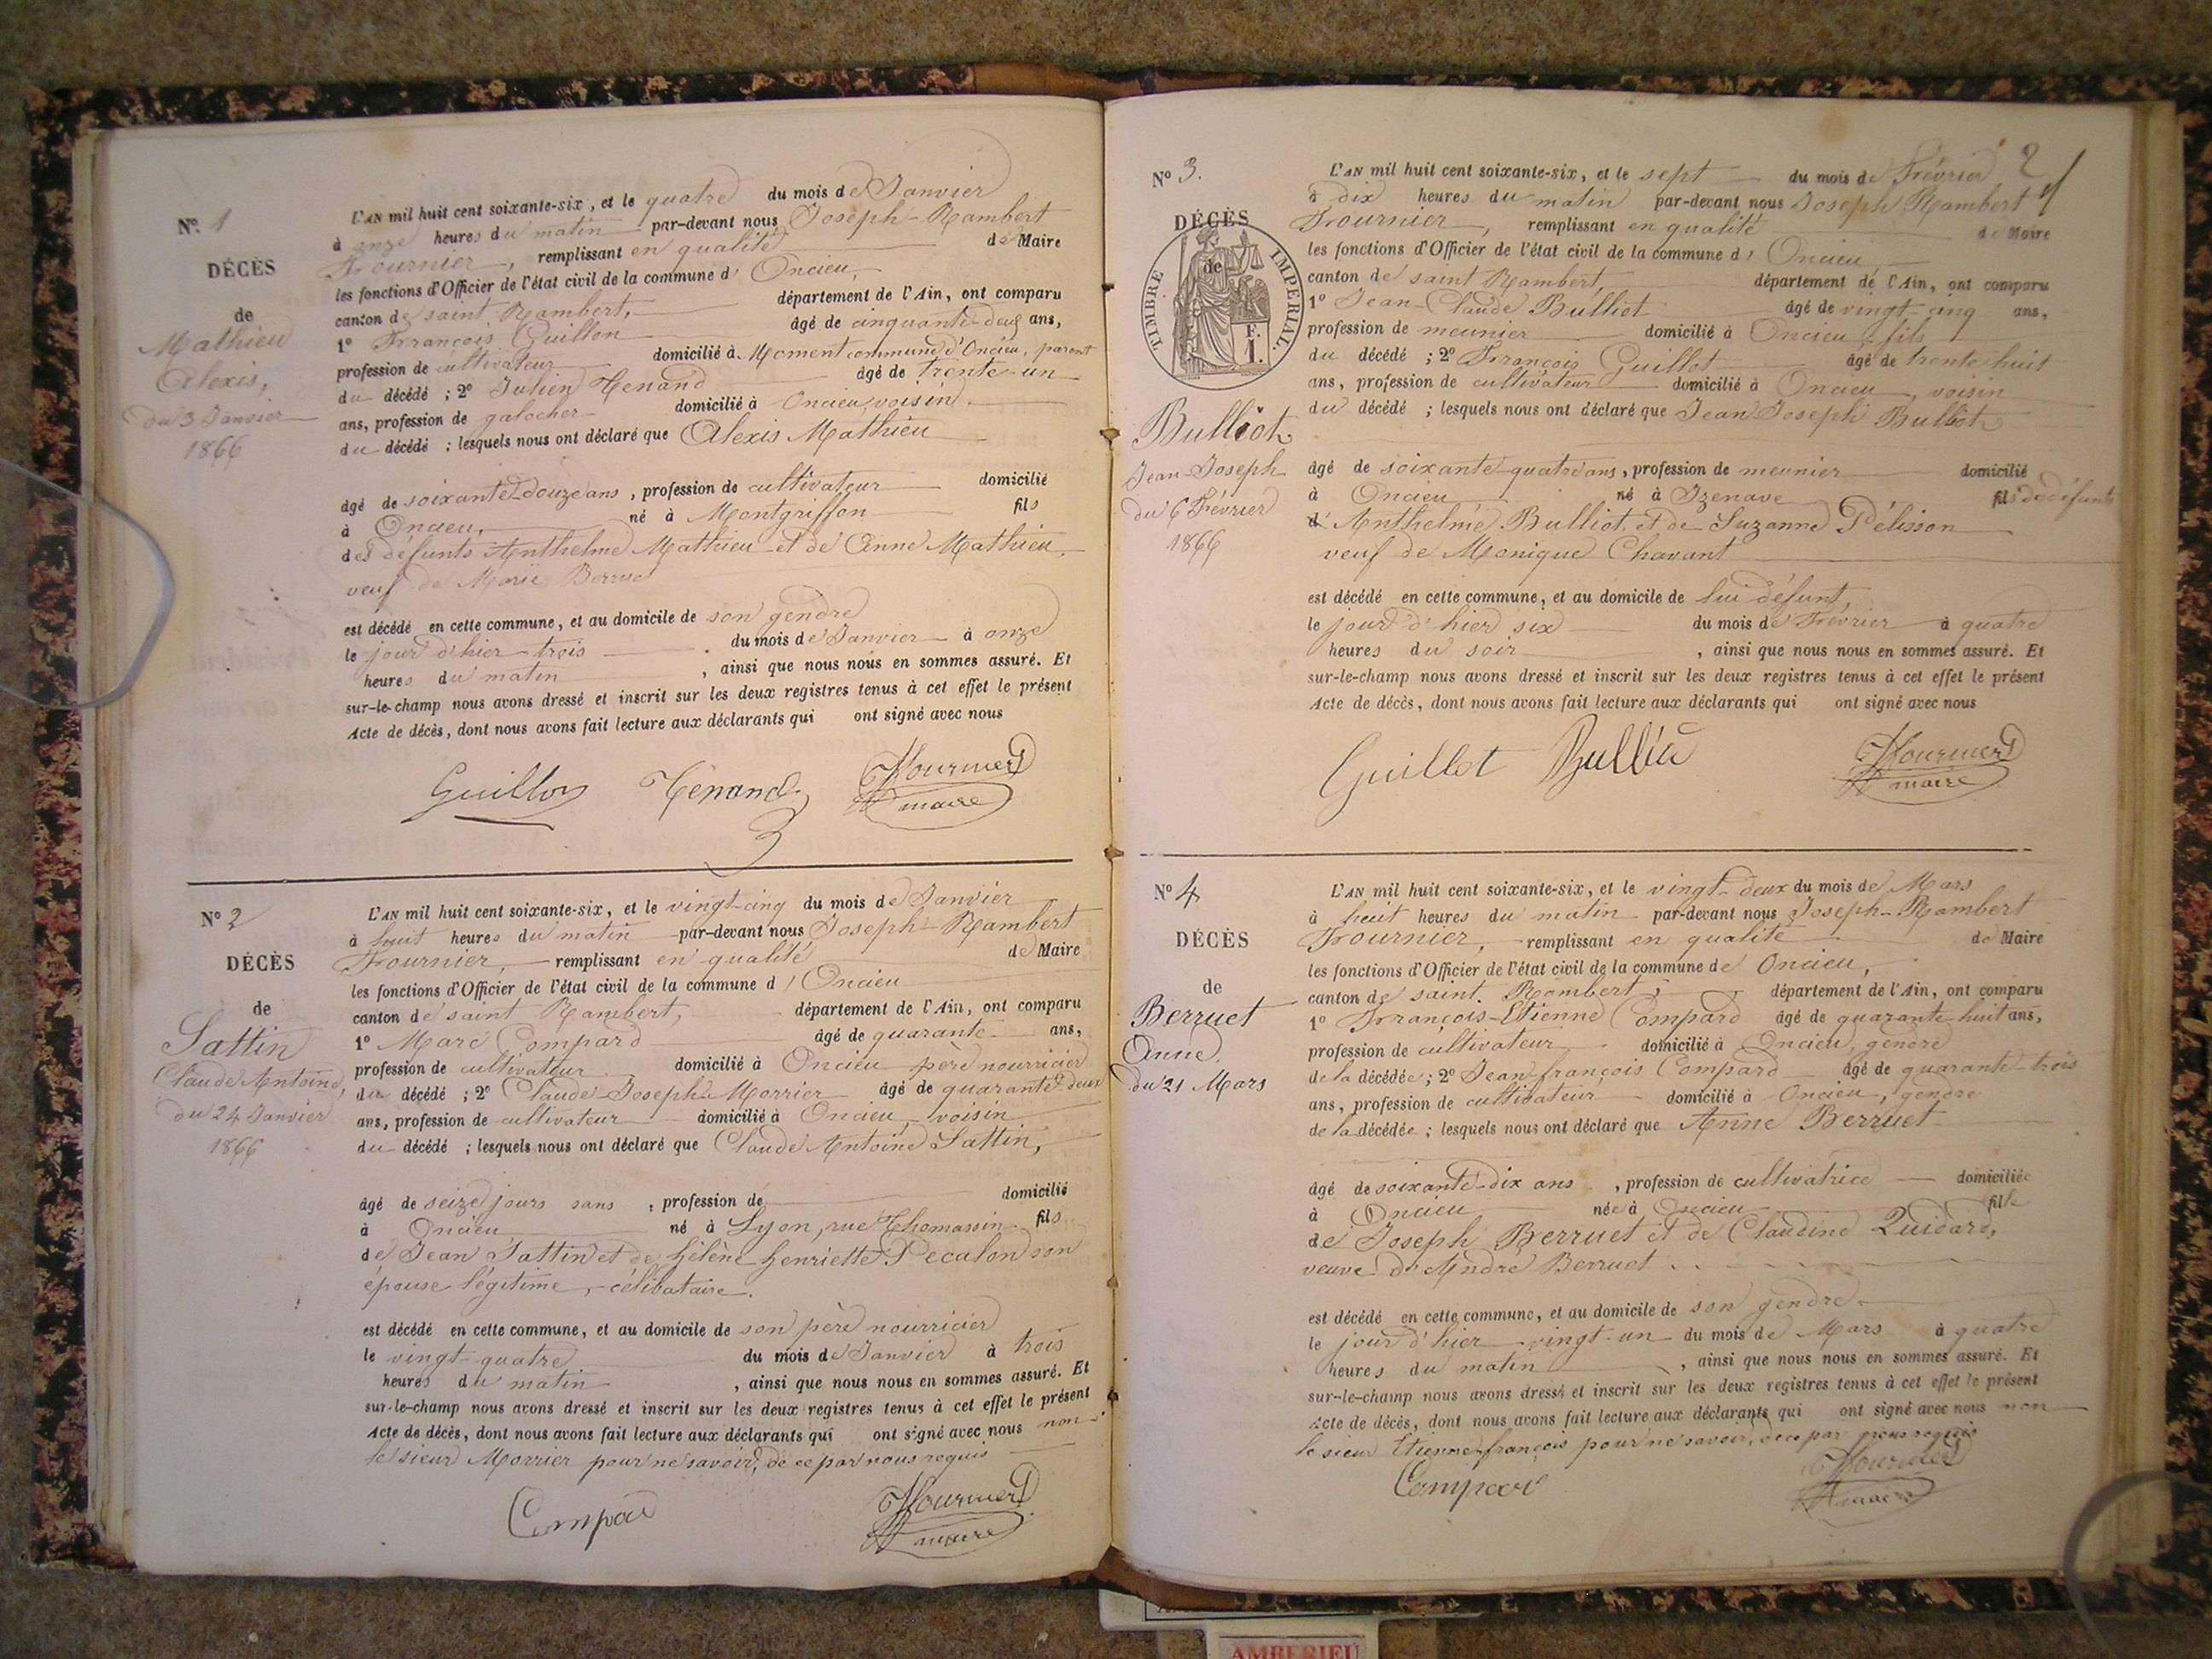 N° 1
DÉCÈS
de
Mathieu
Alexis,
du 3 Janvier
1866
L'AN mil huit cent soixante-six, et le quatre du mois de Janvier
à onze heures du matin par-devant nous Joseph-Rambert
Fournier, remplissant en qualité de Maire
les fonctions d'Officier de l'état civil de la commune d' Oncieu,
canton de saint Rambert, département de l'Ain, ont comparu
1° François Guillon âgé de cinquante-deux ans,
profession de cultivateur domicilié à Moment commune d'Oncieu, parent
du décédé ; 2° Julien Tenand âgé de trente-un
ans, profession de galocher domicilié à Oncieu, voisin
du décédé ; lesquels nous ont déclaré que Alexis Mathieu
âgé de soixante-douze ans, profession de cultivateur domicilié
à Oncieu, né à Montgriffon fils
des défunts Anthelme Mathieu et de Anne Mathieu,
veuf de Marie Berruet
est décédé en cette commune, et au domicile de son gendre
le jour d'hier trois du mois de Janvier à onze
heures du matin, ainsi que nous nous en sommes assuré. Et
sur-le-champ nous avons dressé et inscrit sur les deux registres tenus à cet effet le présent
Acte de décès, dont nous avons fait lecture aux déclarants qui ont signé avec nous
Guillon Tenand Fournier
maire
N° 2
DÉCÈS
de
Sattin
Claude Antoine,
du 24 Janvier
1866
L'AN mil huit cent soixante-six, et le vingt-cinq du mois de Janvier
à huit heures du matin par-devant nous Joseph-Rambert
Fournier, remplissant en qualité de Maire
les fonctions d'Officier de l'état civil de la commune d' Oncieu
canton de saint Rambert, département de l'Ain, ont comparu
1° Marc Compard âgé de quarante ans,
profession de cultivateur domicilié à Oncieu père nourricier
du décédé ; 2° Claude-Joseph Morrier âgé de quarante-deux
ans, profession de cultivateur domicilié à Oncieu, voisin
du décédé ; lesquels nous ont déclaré que Claude Antoine Sattin,
âgé de seize jours sans, profession de domicilié
à Oncieu né à Lyon, rue Thomassin fils
de Jean Sattin et de Hélène Henriette Pecalon son
épouse légitime, célibataire.
est décédé en cette commune, et au domicile de son père nourricier
le vingt-quatre du mois de Janvier à trois
heures du matin, ainsi que nous nous en sommes assuré. Et
sur-le-champ nous avons dressé et inscrit sur les deux registres tenus à cet effet le présent
Acte de décès, dont nous avons fait lecture aux déclarants qui ont signé avec nous non
le sieur Morrier pour ne savoir, de ce par nous requis
Compar Fournier
maire
2
N° 3.
DÉCÈS
de
TIMBRE IMPERIAL.
F.
1.
Bulliot
Jean-Joseph
du 6 Février
1866
L'AN mil huit cent soixante-six, et le sept du mois de Février
à dix heures du matin par-devant nous Joseph Rambert
Fournier, remplissant en qualité de Maire
les fonctions d'Officier de l'état civil de la commune d' Oncieu
canton de saint Rambert, département de l'Ain, ont comparu
1° Jean-Claude Bulliot âgé de vingt-cinq ans,
profession de meunier domicilié à Oncieu, fils
du décédé ; 2° François Guillot âgé de trente huit
ans, profession de cultivateur domicilié à Oncieu, voisin
du décédé ; lesquels nous ont déclaré que Jean Joseph Bulliot
âgé de soixante-quatre ans, profession de meunier domicilié
à Oncieu né à Izenave fils de défunts
d' Anthelme Bulliot et de Suzanne Pélisson
veuf de Monique Chavant
est décédé en cette commune, et au domicile de lui défunt,
le jour d'hier six du mois de Février à quatre
heures du soir, ainsi que nous nous en sommes assuré. Et
sur-le-champ nous avons dressé et inscrit sur les deux registres tenus à cet effet le présent
Acte de décès, dont nous avons fait lecture aux déclarants qui ont signé avec nous
Guillot Fournier
maire
N° 4
DÉCÈS
de
Berruet
Anne,
du 21 Mars
L'AN mil huit cent soixante-six, et le vingt-deux du mois de Mars
à huit heures du matin par-devant nous Joseph-Rambert
Fournier, remplissant en qualité de Maire
les fonctions d'Officier de l'état civil de la commune de Oncieu,
canton de saint Rambert, département de l'Ain, ont comparu
1° François-Etienne Compard âgé de quarante-huit ans,
profession de cultivateur domicilié à Oncieu, gendre
de la décédée ; 2° Jean-françois Compard âgé de quarante-trois
ans, profession de cultivateur domicilié à Oncieu, gendre
de la décédée ; lesquels nous ont déclaré que Anne Berruet
âgé de soixante-dix ans, profession de cultivatrice domiciliée
à Oncieu née à Oncieu fille
de Joseph Berruet et de Claudine Quidard,
veuve de André Berruet
est décédé en cette commune, et au domicile de son gendre
le jour d'hier vingt-un du mois de Mars à quatre
heures du matin, ainsi que nous nous en sommes assuré. Et
sur-le-champ nous avons dressé et inscrit sur les deux registres tenus à cet effet le présent
Acte de décès, dont nous avons fait lecture aux déclarants qui ont signé avec nous non
le sieur Etienne-françois pour ne savoir, de ce par nous requis
Compar Fournier
maire
AMBERIEU